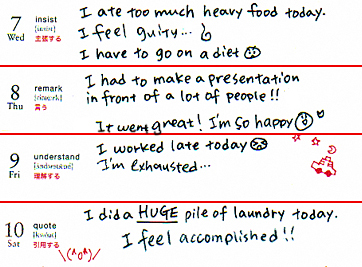 7 insist
Wed
主張する
I ate too much heavy food today.
I feel guity...
I have to go on a diet
8 remark
Thu
言う
I had to make a presentation
in front of a lot of people!!
It went great! I'm so happy
9 understand
Fri
理解する
I worked late today
I'm exhausted...
10 quote
Sat
引用する
I did a HUGE pile of laundry today.
I feel accomplished!!
\(^o^)/